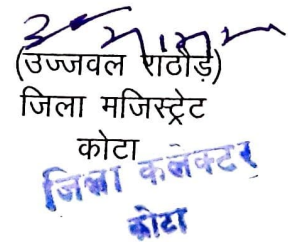 (उज्जवल राठौड़)
जिला मजिस्ट्रेट
कोटा
जिला कलेक्टर
कोटा